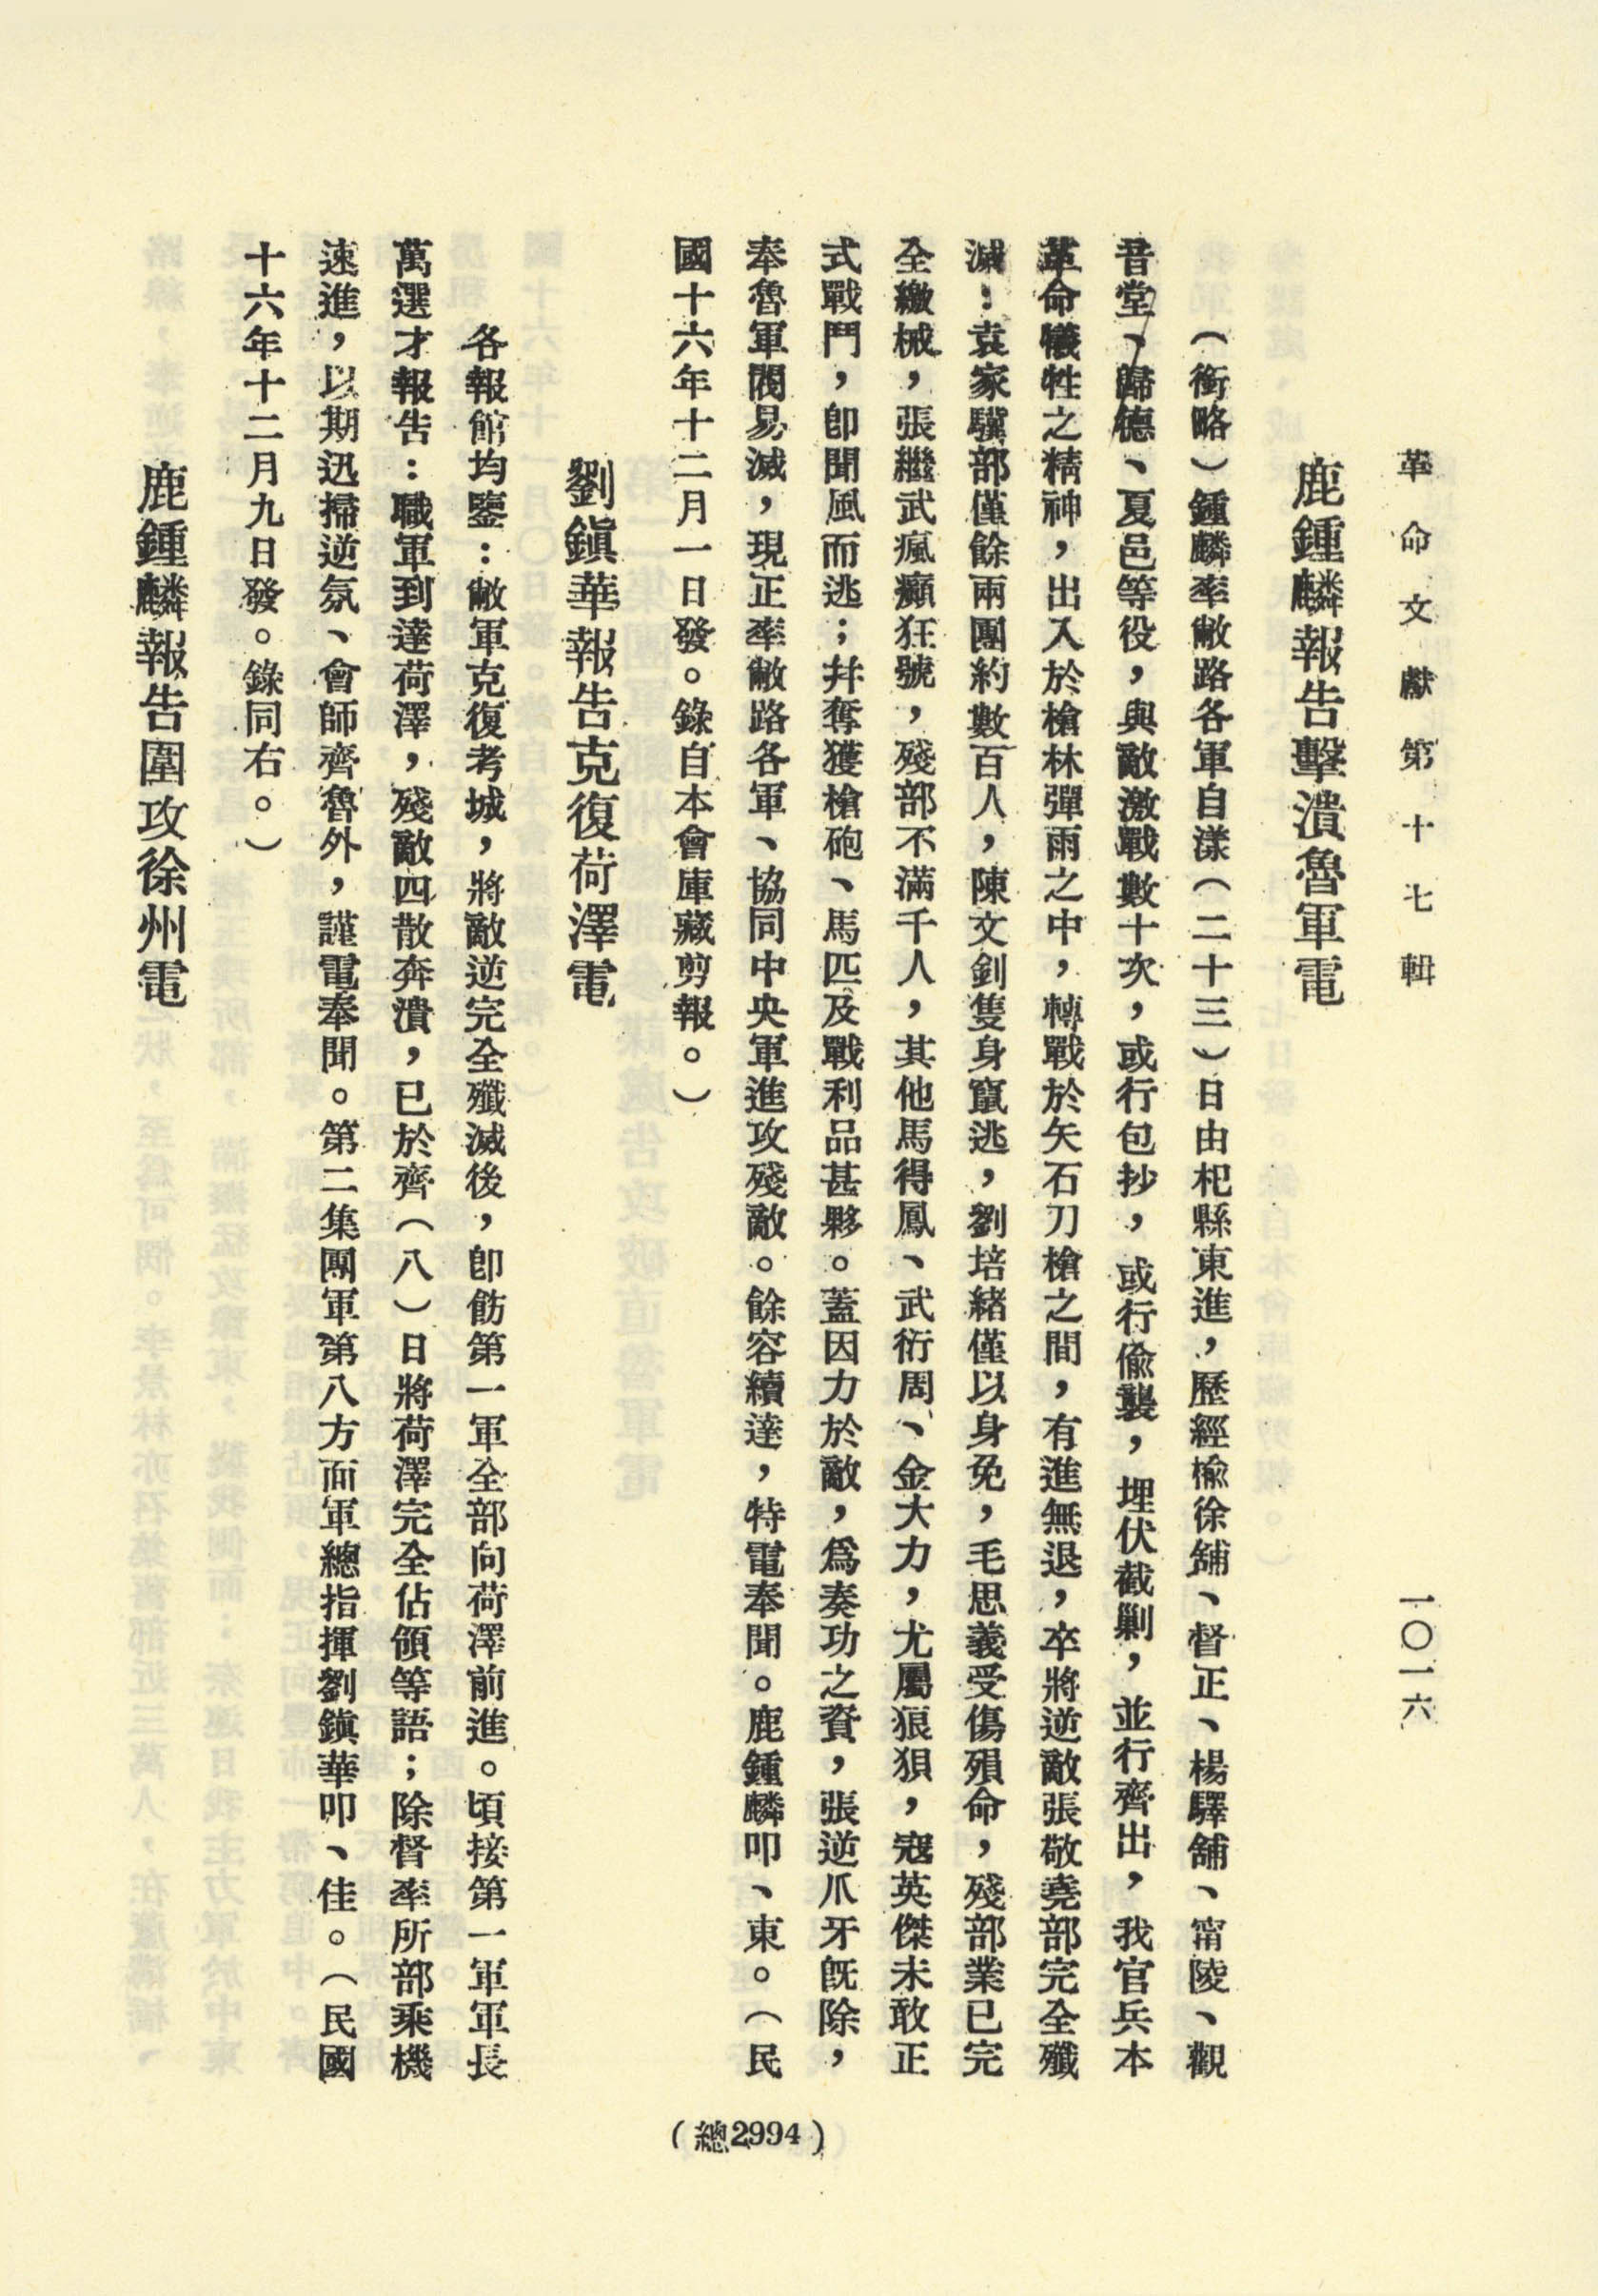 革命文獻第十七輯
一〇一六
鹿鍾麟報告擊潰魯軍電
（銜略）鍾麟率敝路各軍自漾（二十三）日由杞縣東進，歷經榆徐舖、督正、楊驛舖、甯陵、觀
音堂、歸德、夏邑等役，與敵激戰數十次，或行包抄，或行偸襲，埋伏截剿，並行齊出，我官兵本
革命犧牲之精神，出入於槍林彈雨之中，轉戰於矢石刀槍之間，有進無退，卒將逆敵張敬堯部完全殲
滅：袁家驥部僅餘兩團約數百人，陳文釗隻身竄逃，劉培緒僅以身免，毛思義受傷殞命，殘部業已完
全繳械，張繼武瘋癲狂號，殘部不滿千人，其他馬得鳳、武衍周、金大力，尤屬狼狽，寇英傑未敢正
式戰鬥，卽聞風而逃；幷奪獲槍砲、馬匹及戰利品甚夥。蓋因力於敵，爲奏功之資，張逆爪牙旣除，
奉魯軍閥易滅，現正率敝路各軍、協同中央軍進攻殘敵。餘容續達，特電奉聞。鹿鍾麟叩、東。（民
國十六年十二月一日發。錄自本會庫藏剪報。）
劉鎭華報告克復荷澤電
各報館均鑒：敝軍克復考城，將敵逆完全殲滅後，卽飭第一軍全部向荷澤前進。頃接第一軍軍長
萬選才報告：職軍到達荷澤，殘敵四散奔潰，已於齊（八）日將荷澤完全佔領等語；除督率所部乘機
速進，以期迅掃逆氛、會師齊魯外，謹電奉聞。第二集團軍第八方面軍總指揮劉鎭華叩、佳。（民國
十六年十二月九日發。錄同右。）
鹿鍾麟報告圍攻徐州電
（總2994）